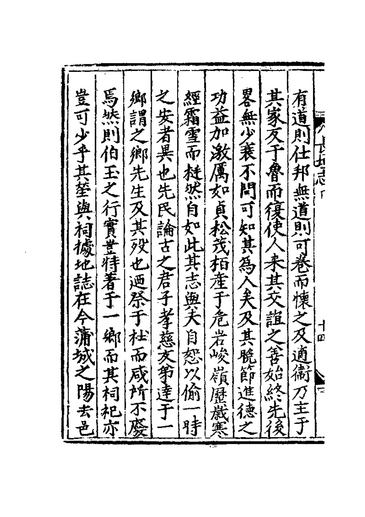 有道則仕邦無道則可卷而懷之及適衞乃主于
其家反于魯而復使人來其交誼之善始終先後
畧無少衰不問可知其為人矣及其晚節進德之
功益加激厲如貞松茂柏產于危岩峻嶺歷歲寒
經霜雪而挺然自如此其志與夫自怨以偷一時
之安者異也先民論古之君子孝慈友弟達于一
鄉謂之鄉先生及其歿也廼祭于社而咸所不廢
焉然則伯玉之行實豈特著于一鄉而其祠祀亦
豈可少乎其塋與祠據地誌在今蒲城之陽去邑